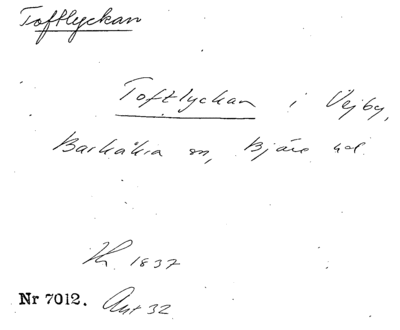 Toftlyckan
Toftlyckan i Vejby,
Barkåkra sn, Bjäre hd
1837
Nr 7012. Ant 32